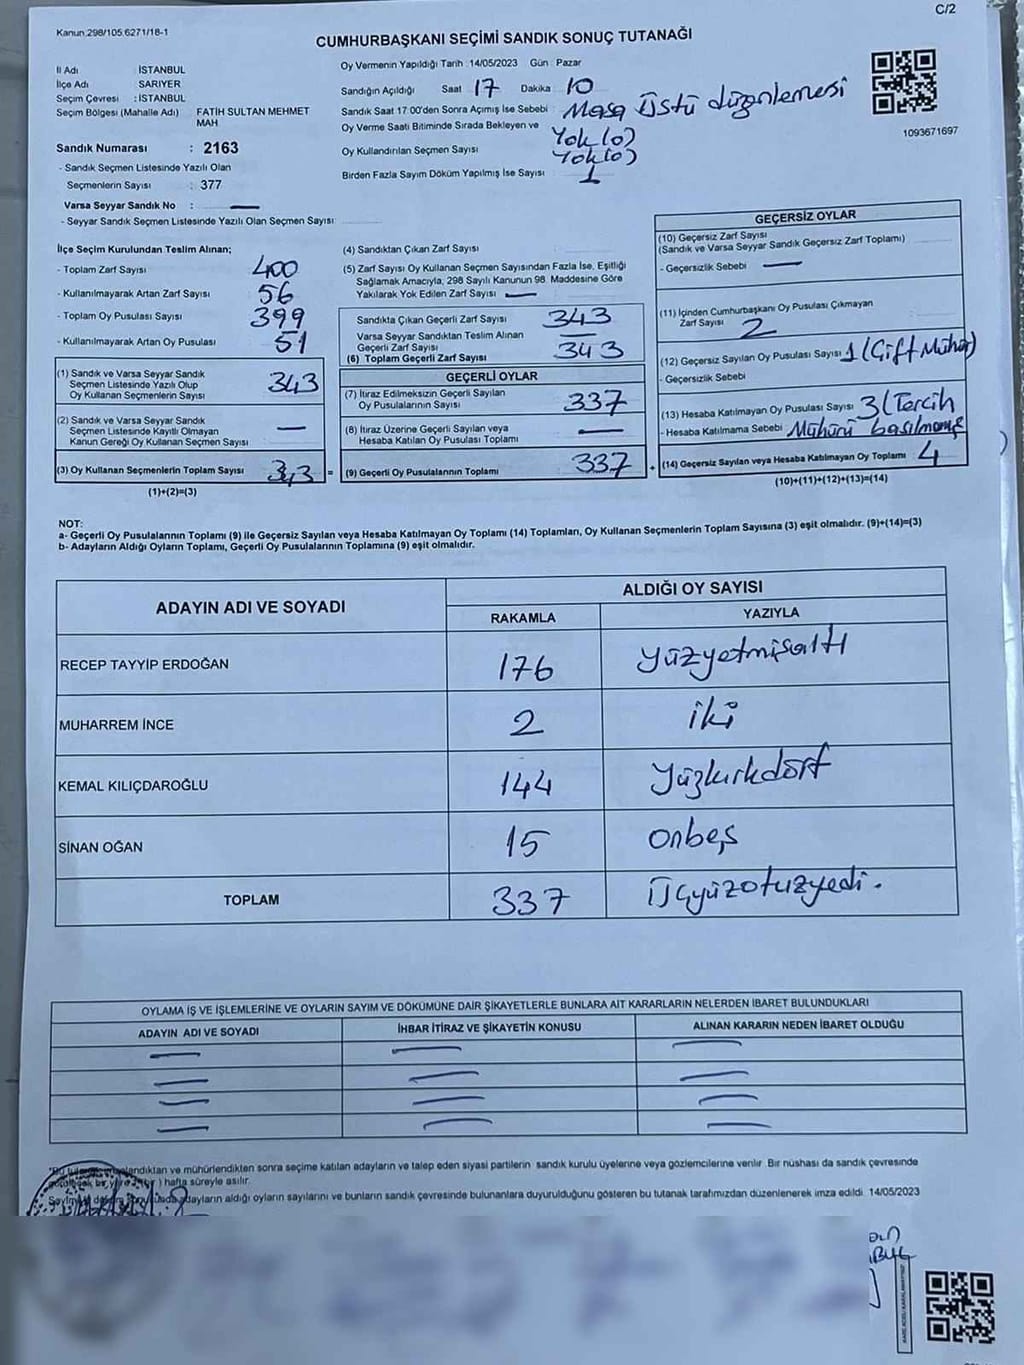 C/2
Kanun:298/105 6271/18-1
CUMHURBAŞKANI SEÇİMİ SANDIK SONUÇ TUTANAĞI
İl Adı : İSTANBUL
İlçe Adı : SARIYER
Seçim Çevresi : İSTANBUL
Seçim Bölgesi (Mahalle Adı) FATİH SULTAN MEHMET
MAH
Sandık Numarası : 2163
- Sandık Seçmen Listesinde Yazılı Olan
Seçmenlerin Sayısı : 377
Varsa Seyyar Sandık No :
- Seyyar Sandık Seçmen Listesinde Yazılı Olan Seçmen Sayısı:
Oy Vermenin Yapıldığı Tarih :14/05/2023 Gün : Pazar
Sandığın Açıldığı Saat 17 Dakika 10
Sandık Saat 17:00'den Sonra Açımış İse Sebebi : Masa Üstü düzenlemesi
Oy Verme Saati Bitiminde Sırada Bekleyen ve Yok (0)
Oy Kullandırılan Seçmen Sayısı Yok (0)
Birden Fazla Sayım Döküm Yapılmış İse Sayısı 1
1093671697
İlçe Seçim Kurulundan Teslim Alınan;
- Toplam Zarf Sayısı 400
- Kullanılmayarak Artan Zarf Sayısı 56
- Toplam Oy Pusulası Sayısı 399
- Kullanılmayarak Artan Oy Pusulası 51
(1) Sandık ve Varsa Seyyar Sandık
Seçmen Listesinde Yazılı Olup
Oy Kullanan Seçmenlerin Sayısı 343
(2) Sandık ve Varsa Seyyar Sandık
Seçmen Listesinde Kayıtlı Olmayan
Kanun Gereği Oy Kullanan Seçmen Sayısı
(3) Oy Kullanan Seçmenlerin Toplam Sayısı 343 =
(1)+(2)=(3)
(4) Sandıktan Çıkan Zarf Sayısı
(5) Zarf Sayısı Oy Kullanan Seçmen Sayısından Fazla İse, Eşitliği
Sağlamak Amacıyla, 298 Sayılı Kanunun 98. Maddesine Göre
Yakılarak Yok Edilen Zarf Sayısı
Sandıkta Çıkan Geçerli Zarf Sayısı 343
Varsa Seyyar Sandıktan Teslim Alınan
Geçerli Zarf Sayısı
(6) Toplam Geçerli Zarf Sayısı 343
GEÇERLİ OYLAR
(7) İtiraz Edilmeksizin Geçerli Sayılan
Oy Pusulalarının Sayısı 337
(8) İtiraz Üzerine Geçerli Sayılan veya
Hesaba Katılan Oy Pusulası Toplamı
(9) Geçerli Oy Pusulalarının Toplamı 337 +
GEÇERSİZ OYLAR
(10) Geçersiz Zarf Sayısı
(Sandık ve Varsa Seyyar Sandık Geçersiz Zarf Toplamı)
- Geçersizlik Sebebi
(11) İçinden Cumhurbaşkanı Oy Pusulası Çıkmayan
Zarf Sayısı 2
(12) Geçersiz Sayılan Oy Pusulası Sayısı 1 (Çift Mühür)
- Geçersizlik Sebebi
(13) Hesaba Katılmayan Oy Pusulası Sayısı 3 (Tercih
- Hesaba Katılmama Sebebi Mühürü basılmamış
(14) Geçersiz Sayılan veya Hesaba Katılmayan Oy Toplamı 4
(10)+(11)+(12)+(13)=(14)
NOT:
a- Geçerli Oy Pusulalarının Toplamı (9) ile Geçersiz Sayılan veya Hesaba Katılmayan Oy Toplamı (14) Toplamları, Oy Kullanan Seçmenlerin Toplam Sayısına (3) eşit olmalıdır. (9)+(14)=(3)
b- Adayların Aldığı Oyların Toplamı, Geçerli Oy Pusulalarının Toplamına (9) eşit olmalıdır.
ADAYIN ADI VE SOYADI
ALDIĞI OY SAYISI
RAKAMLA YAZIYLA
RECEP TAYYİP ERDOĞAN 176 yüzyetmişaltı
MUHARREM İNCE 2 iki
KEMAL KILIÇDAROĞLU 144 yüzkırkdört
SİNAN OĞAN 15 onbeş
TOPLAM 337 Üçyüzotuzyedi.
OYLAMA İŞ VE İŞLEMLERİNE VE OYLARIN SAYIM VE DÖKÜMÜNE DAİR ŞİKAYETLERLE BUNLARA AİT KARARLARIN NELERDEN İBARET BULUNDUKLARI
ADAYIN ADI VE SOYADI İHBAR İTİRAZ VE ŞİKAYETİN KONUSU ALINAN KARARIN NEDEN İBARET OLDUĞU
ve mühürlendikten sonra seçime katılan adayların ve talep eden siyasi partilerin sandık kurulu üyelerine veya gözlemcilerine verilir. Bir nüshası da sandık çevresinde
) hafta süreyle asılır.
adayların aldığı oyların sayılarını ve bunların sandık çevresinde bulunanlara duyurulduğunu gösteren bu tutanak tarafımızdan düzenlenerek imza edildi. 14/05/2023